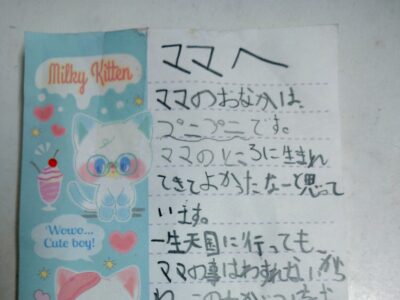 Milky Kitten
Wowo...
Cute boy!
ママへ
ママのおなかは、
プニプニです。
ママのところに生まれ
てきてよかったなーと思って
います。
一生天国に行っても、
ママの事はわすれないから